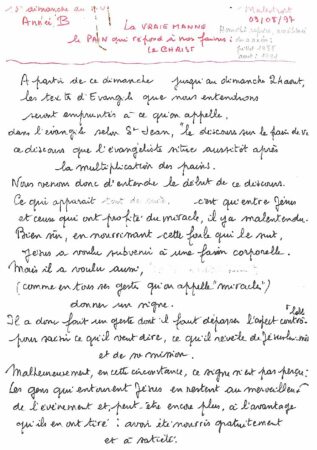 18e dimanche du
Année B
La VRAIE MANNE
le PAIN qui répond à nos faims :
le CHRIST
03/08/97
A partir de ce dimanche jusqu'au dimanche 24 août,
les textes d'Evangile que nous entendrons
seront empruntés à ce qu'on appelle,
dans l'évangile selon St Jean, "le discours sur le pain de vie"
ce discours que l'évangéliste situe aussitôt après
la multiplication des pains.
Nous venons donc d'entendre le début de ce discours.
Ce qui apparait tout de suite, c'est qu'entre Jésus
et ceux qui ont profité du miracle, il y a malentendu.
Bien sûr, en nourrissant cette foule qui le suit,
Jésus a voulu subvenir à une faim corporelle.
Mais il a voulu aussi,
(comme en tous ses gestes qu'on appelle "miracles")
donner un signe.
Il a donc fait un geste dont il faut dépasser l'aspect
pour saisir ce qu'il veut dire, ce qu'il révèle de Jésus lui-même
et de sa mission.
Malheureusement, en cette circonstance, ce signe n'est pas perçu :
Les gens qui entourent Jésus en restent au merveilleux
de l'événement et, peut-être encore plus, à l'avantage
qu'ils en ont tiré : avoir été nourris gratuitement
et à satiété.